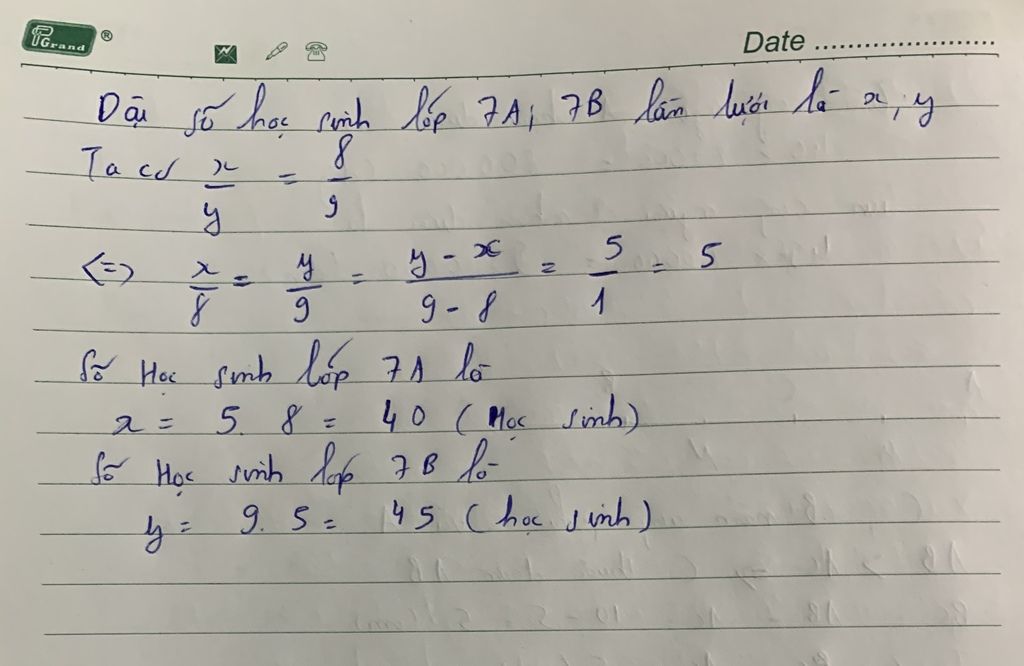 PGrand ®
Date ........................
Dọi số học sinh lớp 7A; 7B lần lượt là x, y
Ta có x/y = 8/9
<=> x/8 = y/9 = y - x/9 - 8 = 5/1 = 5
Số Học sinh lớp 7A là
x = 5. 8 = 40 (Học sinh)
Số Học sinh lớp 7B là
y = 9. 5 = 45 (học sinh)